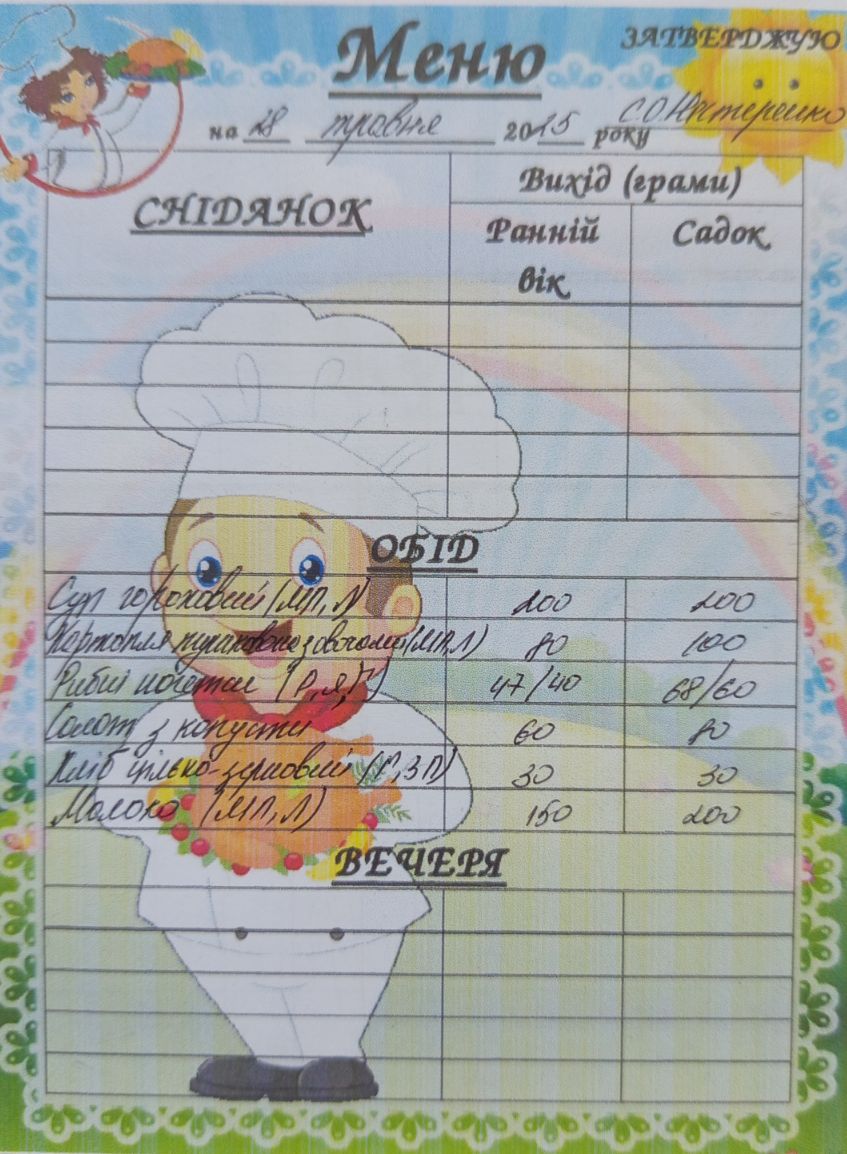 Меню
ЗАТВЕРДЖУЮ
на 28 травня 2025 року
СНІДАНОК
Вихід (грами)
Ранній вік
Садок
ОБІД
Суп гороховий (МП, Л) 200 200
Картопля (МП, Л) 80 100
Рибні (Р, Я, Г) 47/40 68/60
Салат з капусти 60 80
Хліб цілько-зерновий (Г, ЗП) 30 30
Молоко (МП, Л) 150 200
ВЕЧЕРЯ